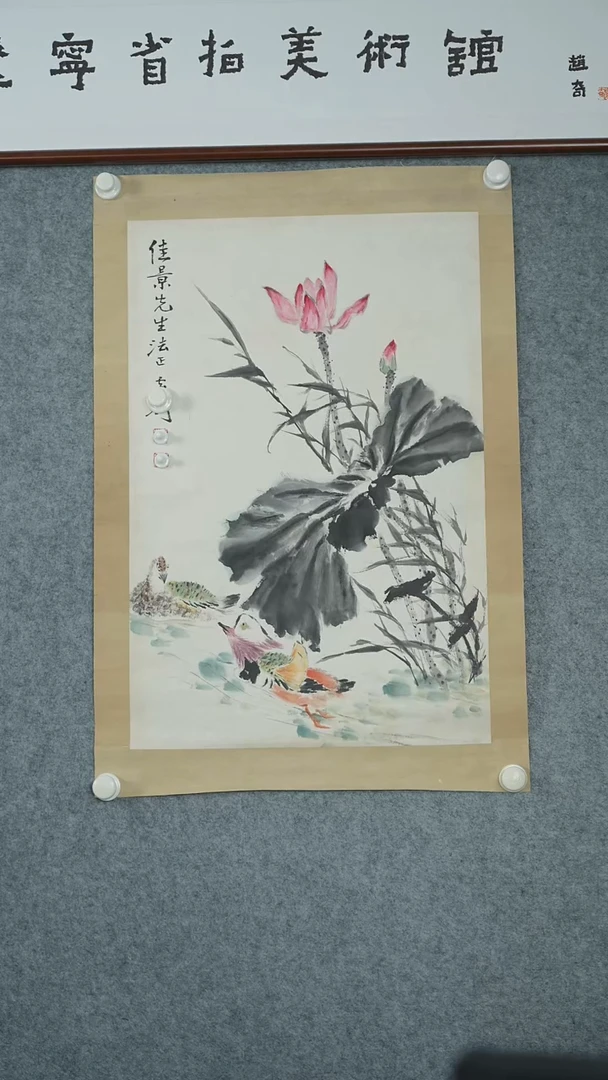 寧省拍美術館
趙奇
佳景先生法正